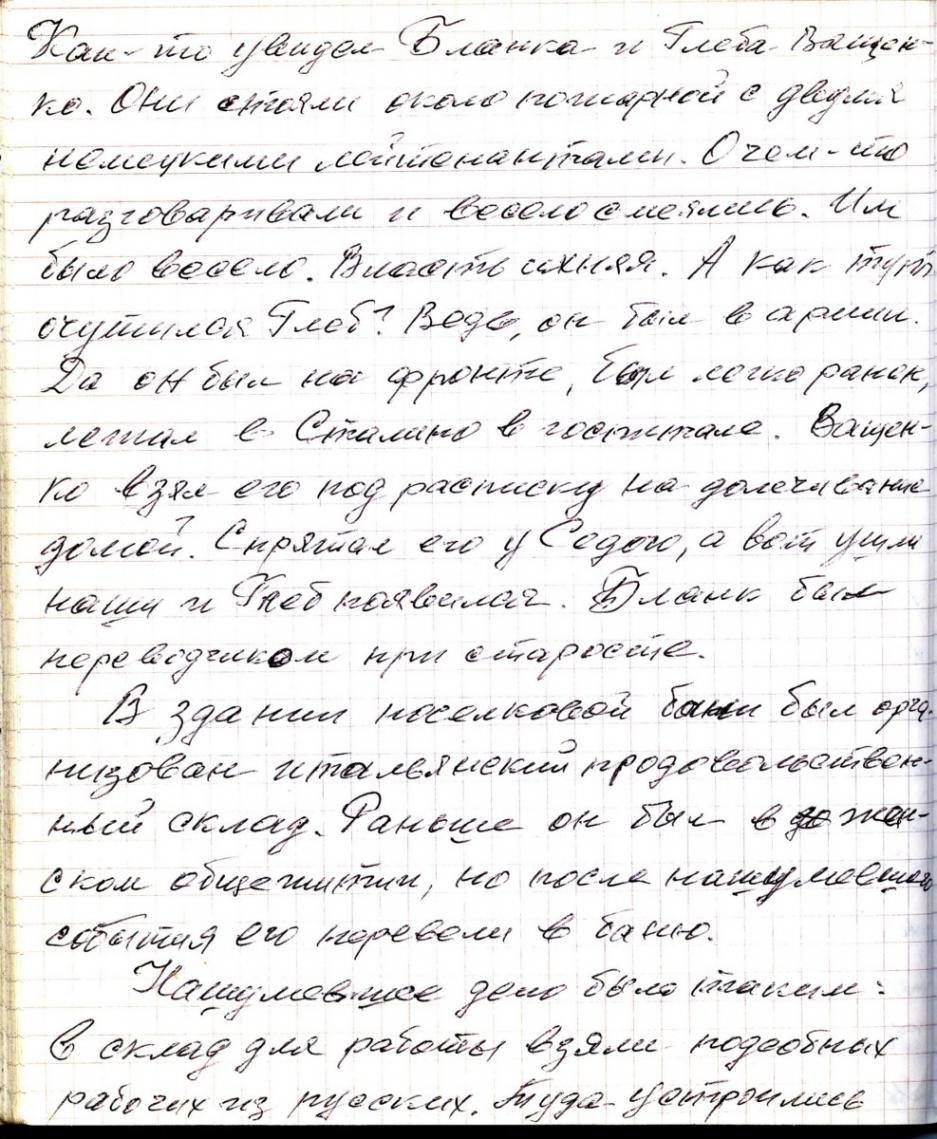 Как-то увидел Бланка и Глеба Ващен-
ко. Они стояли около пожарной с двумя
немецкими лейтенантами. О чем-то
разговаривали и весело смеялись. Им
было весело. Власть ихняя. А как тут
очутился Глеб? Ведь, он был в армии.
Да он был на фронте, был легко ранен,
лежал в Сталино в госпитале. Ващен-
ко взял его под расписку на долечивание
домой. Спрятал его у Седого, а вот ушли
наши и Глеб появился. Бланк был
переводчиком при старосте.
В здании поселковой бани был орга-
низован итальянский продовольствен-
ный склад. Раньше он был в жен-
ском общежитии, но после нашумевшего
события его перевели в баню.
Нашумевшее дело было таким:
в склад для работы взяли подсобных
рабочих из русских. Туда устроились